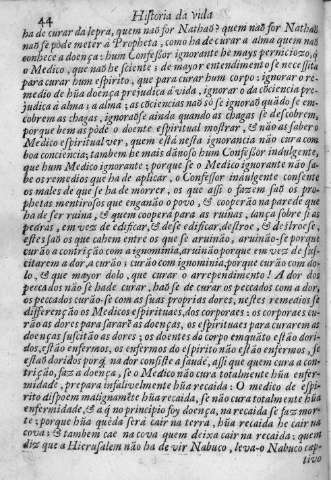 44 Historia da vida
ha de curar da lepra, quem naõ for Nathaõ? quem naõ for Nathaõ
naõ se póde meter a Propheta, como ha de curar a alma quem naõ
conhece a doença: hum Confessor ignorante he mays perniciozo, q̃
o Medico, que naõ he sciente: de mayor entendimento se necessita
para curar hum espirito, que para curar hum corpo: ignorar o re-
medio de hũa doença prejudica á vida, ignorar o da cõciencia pre-
judica á alma; a alma; as cõciencias naõ só se ignoraõ quãdo se em-
cobrem as chagas, ignoraõse ainda quando as chagas se descobrem,
porque bem as póde o doente espiritual mostrar, & naõ as saber o
Medico espiritual ver, quem está nesta ignorãncia não cura com
boa conciencia; tambem he mais dãnoso hum Confessor indulgente,
que hum Medico ignorante: porque se o Medico ignorante não sa-
be os remedios que ha de aplicar, o Confessor indulgente consente
os males de que se ha de morrer, os que assi o fazem saõ os pro-
phetas mentirosos que enganão o povo, & cooperão na parede que
ha de ser ruina, & quem coopera para as ruinas, lança sobre si as
pedras, em vez de edificar, & de se edificar, destroe, & destroese,
estes saõ os que cahem entre os que se aruinão, aruinão-se porque
curão a contrição com a ignominia, aruinão porque em vez de sus-
citarem a dor, a curão: curão com ignominia, porque curão com do-
lo, & que mayor dolo, que curar o arrependimento! A dor dos
peccados não se hade curar, haõ se de curar os peccados com a dor,
os peccados curão-se com as suas proprias dores, nestes remedios se
differenção os Medicos espirituaes, dos corporaes: os corporaes cu-
rão as dores para sararẽ as doenças, os espirituaes para curarem as
doenças suscitão as dores; os doentes do corpo emquãto estão dori-
dos, estão enfermos, os enfermos do espirito não estão enfermos, se
estaõ doridos porq̃ na dor consiste a saude, assi que quem cura a con-
trição, faz a doença, se o Medico não cura totalmente hũa enfer-
midade, prepara infalivelmente hũa recaida: O medico de espi-
rito dispoem malignamẽte hũa recaida, se não cura totalmente hũa
enfermidade, & a q̃ no principio foy doença, na recaida se faz mor-
te: porque hũa quéda será cair na terra, hũa recaida he cair na
cova: & tambem cae na cova quem deixa cair na recaida: quem
diz que a Hierusalem não ha de vir Nabuco, leva-o Nabuco cap-
tivo